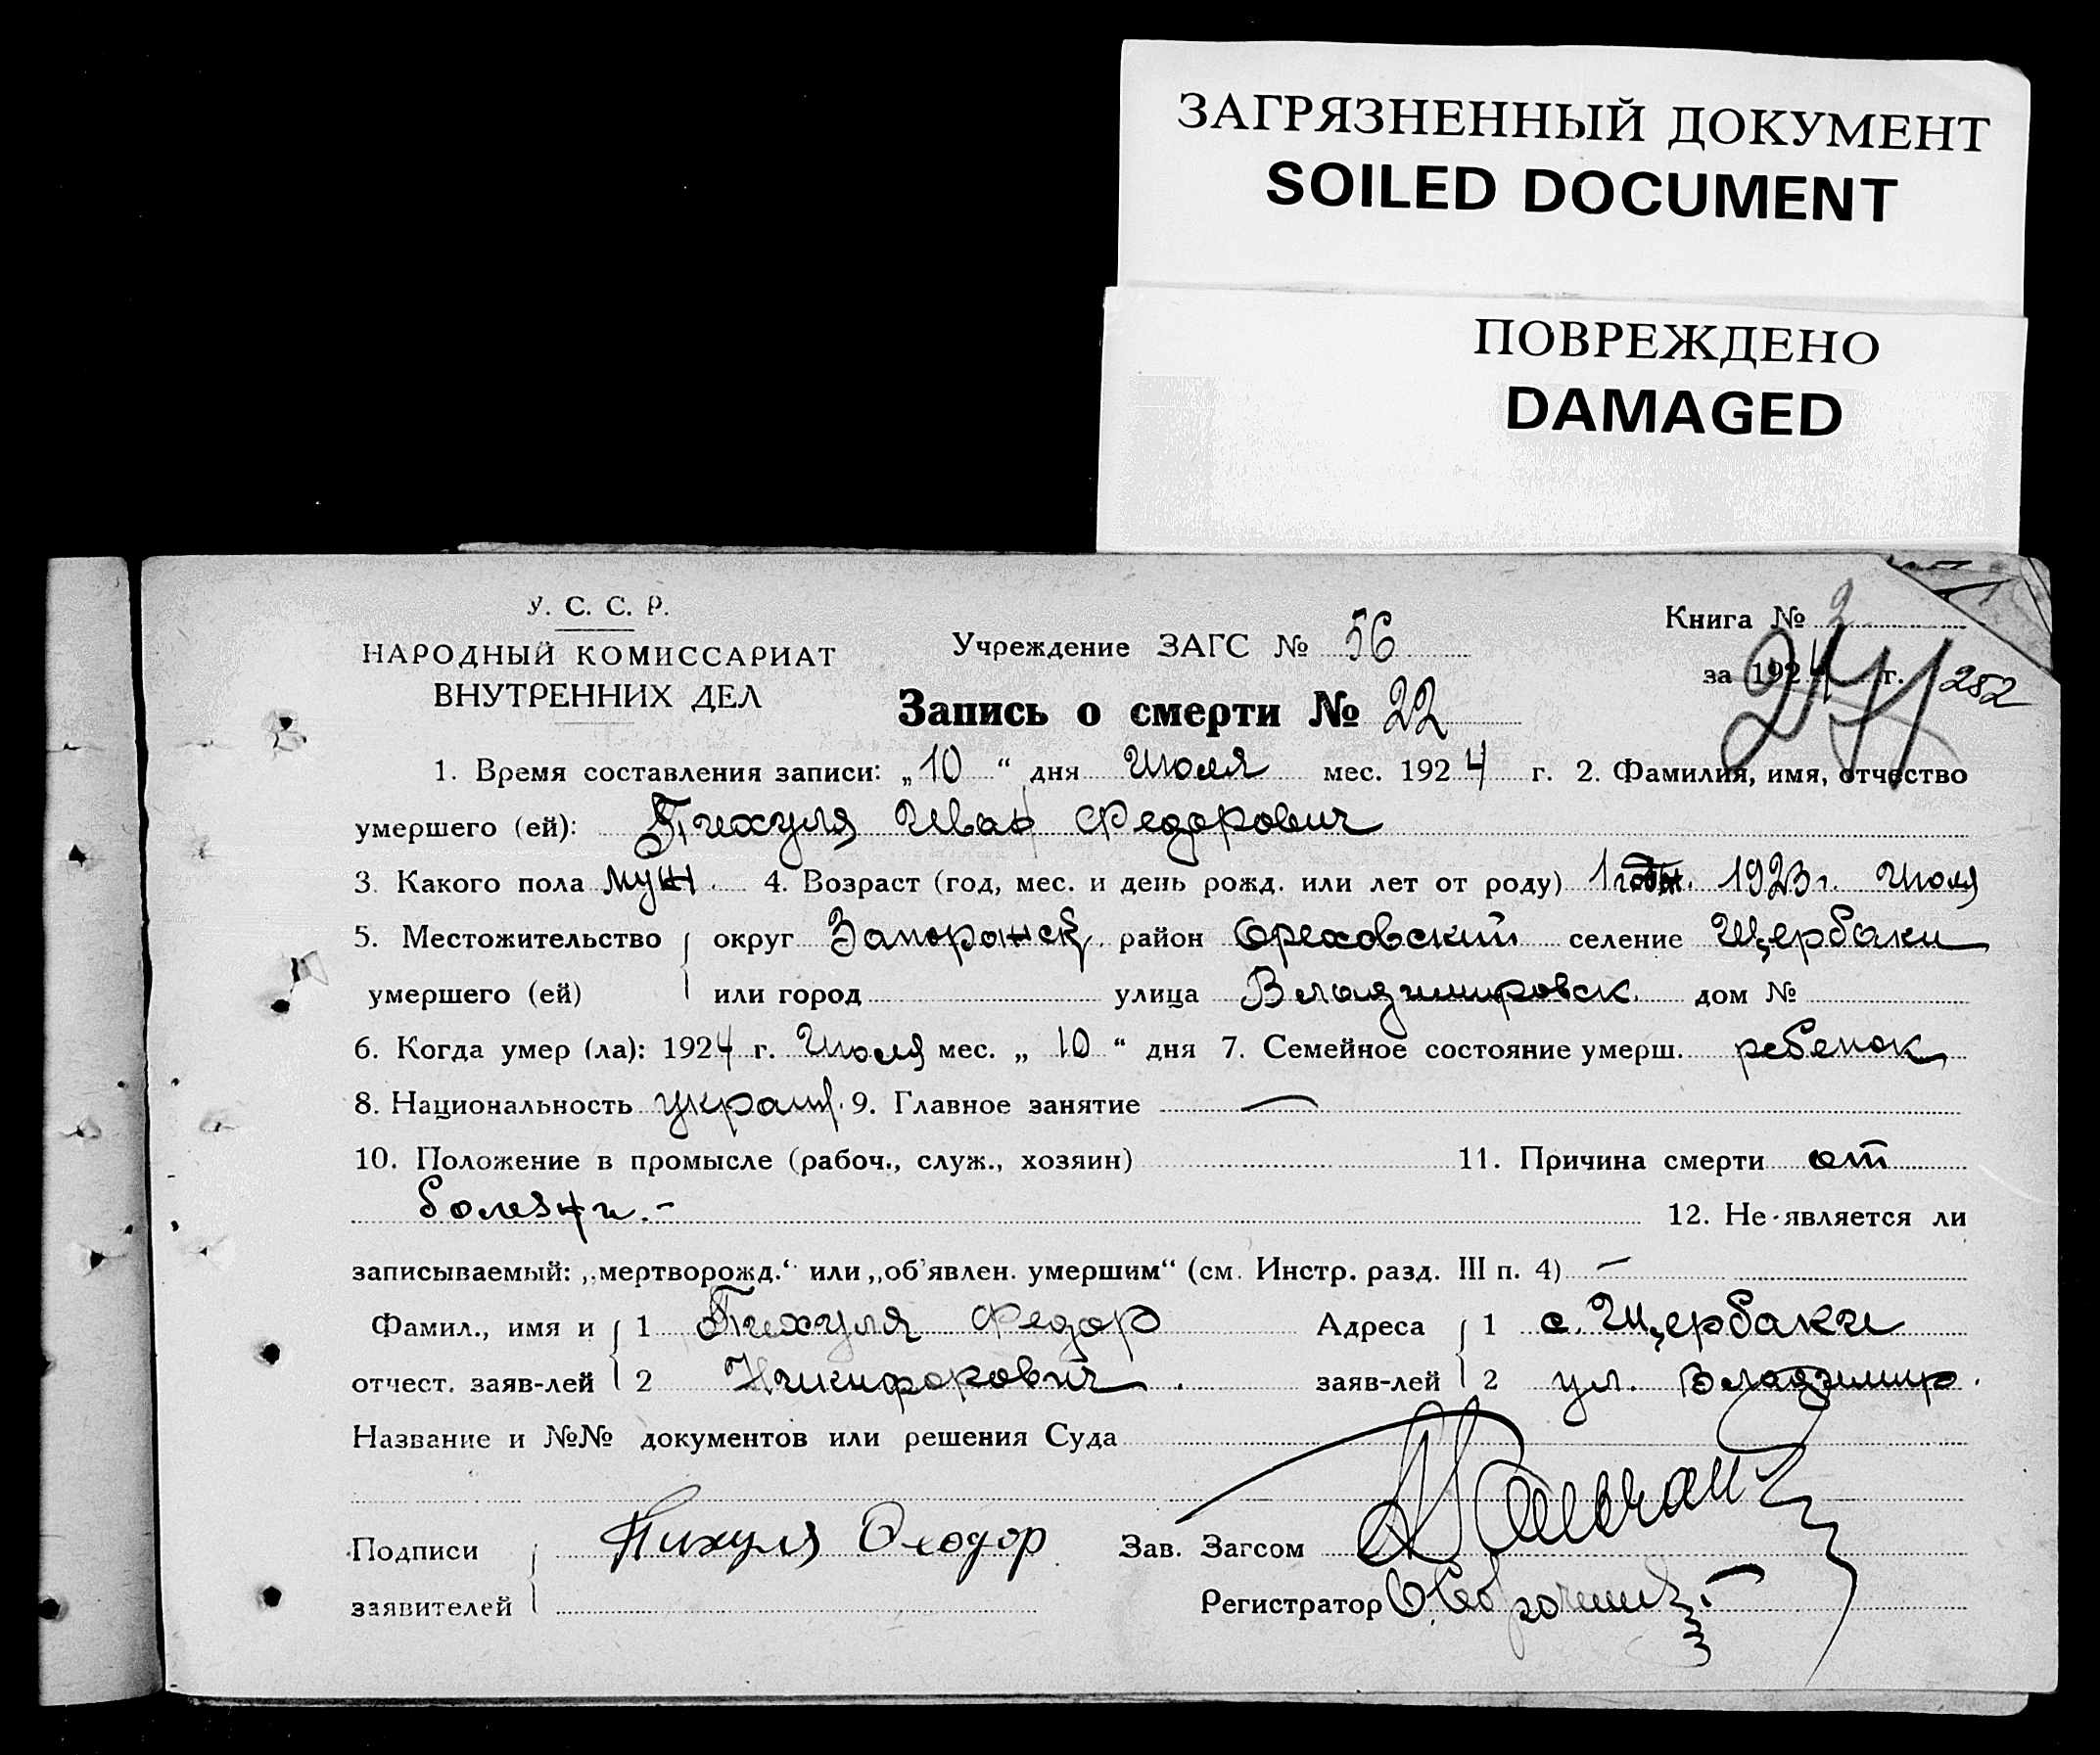 ЗАГРЯЗНЕННЫЙ ДОКУМЕНТ
SOILED DOCUMENT
ПОВРЕЖДЕНО
DAMAGED
У. С. С. Р.
НАРОДНЫЙ КОМИССАРИАТ
ВНУТРЕННИХ ДЕЛ
Учреждение ЗАГС № 56
Книга № 2
за 1924 г.
241 252
Запись о смерти № 22
1. Время составления записи: „10“ дня Июля мес. 1924 г. 2. Фамилия, имя, отчество
умершего (ей): Пихуля Иван Федорович
3. Какого пола муж. 4. Возраст (год, мес. и день рожд. или лет от роду) 1 1923 г. Июля
5. Местожительство округ Запорожск. район Ореховский селение Щербаки
умершего (ей) или город улица Владимировск. дом №
6. Когда умер (ла): 1924 г. Июля мес. „10“ дня 7. Семейное состояние умерш. ребенок
8. Национальность украин. 9. Главное занятие —
10. Положение в промысле (рабоч., служ., хозяин) 11. Причина смерти от
болезни.- 12. Не является ли
записываемый: „мертворожд.“ или „об'явлен. умершим“ (см. Инстр. разд. III п. 4) —
Фамил., имя и 1 Пихуля Федор Адреса 1 с. Щербаки
отчест. заяв-лей 2 Никифорович. заяв-лей 2 ул. Владимир.
Название и №№ документов или решения Суда
Подписи Пихуля Зав. Загсом
заявителей Регистратор